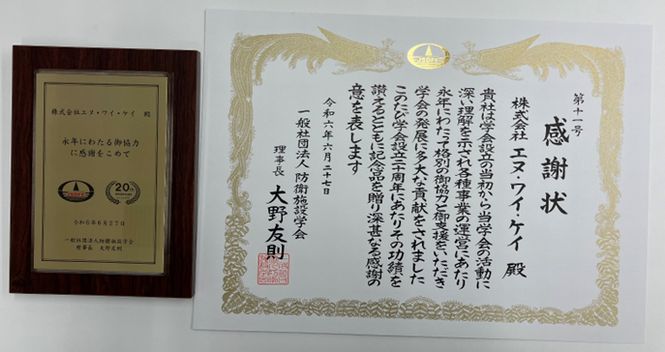 株式会社エヌ・ワイ・ケイ 殿
永年にわたる御協力
に感謝をこめて
20th
令和6年6月27日
一般社団法人防衛施設学会
理事長 大野友則
第十一号
感謝状
株式会社 エヌ・ワイ・ケイ 殿
貴社は学会設立の当初から当学会の活動に
深い理解を示され各種事業の運営にあたり
永年にわたって格別の御協力と御支援をいただき
学会の発展に多大な貢献をされました
このたび学会設立二十周年にあたりその功績を
讃えるとともに記念品を贈り深甚なる感謝の
意を表します
令和六年六月二十七日
一般社団法人 防衛施設学会
理事長 大野友則